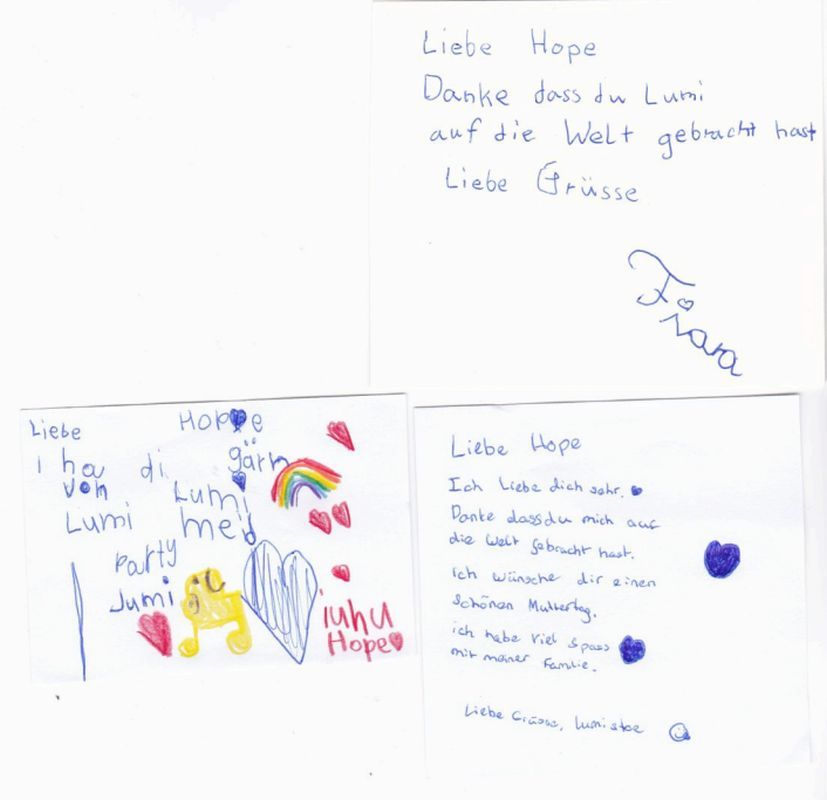 Liebe Hope
Danke dass du Lumi
auf die Welt gebracht hast
Liebe Grüsse
Liebe Hoppe
i ha di gärn
von Lumi
Lumi med
Party
Jumi
iuhu
Hope
Liebe Hope
Ich Liebe dich sehr.
Danke dass du mich auf
die Welt gebracht hast.
Ich wünsche dir einen
schönen Muttertag.
ich habe viel Spass
mit meiner Familie.
Liebe Grüsse,